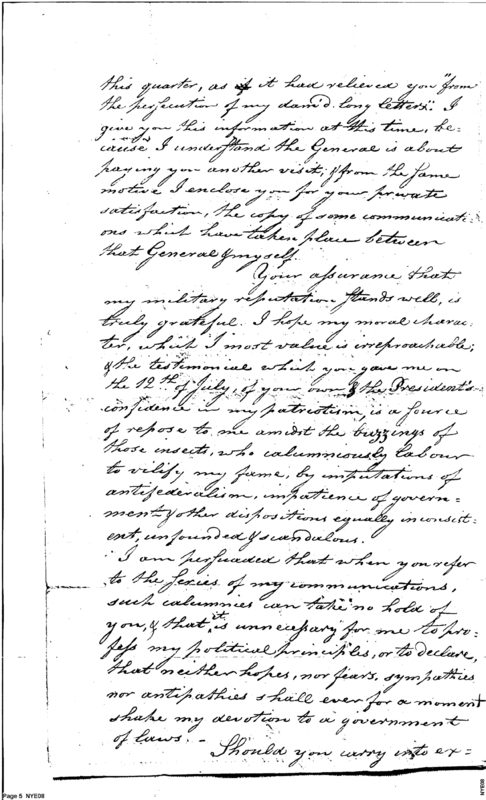 this quarter, as if it had relieved you "from
the persecution of my dam'd long letters". I
give you this information at this time, be=
cause I understand the General is about
paying you another visit; & from the same
motive I enclose you for your private
satisfaction, the copy of some communicati=
ons which have taken place between
that General & myself.
Your assurance that
my military reputation stands well, is
truly grateful. I hope my moral charac=
ter, which I most value is irreproachable;
& the testimonial which you gave me on
the 12th of July, of your own & the President's
confidence in my patriotism, is a source
of repose to me amidst the buzzings of
those insects, who calumniously labour
to vilify my fame, by imputations of
antifederalism, impatience of govern=
ment & other dispositions equally inconsist=
ent, unfounded & scandalous.
I am persuaded that when you refer
to the series of my communications,
such calumnies can take no hold of
you, & that it is unnecessary for me to pro=
fess my political principles, or to declare,
that neither hopes, nor fears, sympathies
nor antipathies shall ever for a moment
shake my devotion to a government
of laws. –
Should you carry into ex=
Page 5 NYE08
NYE08